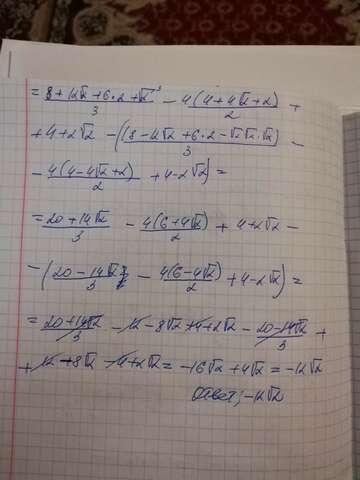 = (8+12√2+6·2+√2³)/3 - 4(4+4√2+2)/2 +
+4+2√2 -((8-12√2+6·2-√2√2·√2)/3 -
- 4(4-4√2+2)/2 +4-2√2)=
= (20+14√2)/3 - 4(6+4√2)/2 +4+2√2 -
-((20-14√2)/3 - 4(6-4√2)/2 +4-2√2)=
= (20+14√2)/3 -12-8√2+4+2√2- (20-14√2)/3 +
+12+8√2-4+2√2=-16√2+4√2=-12√2
Ответ: -12√2